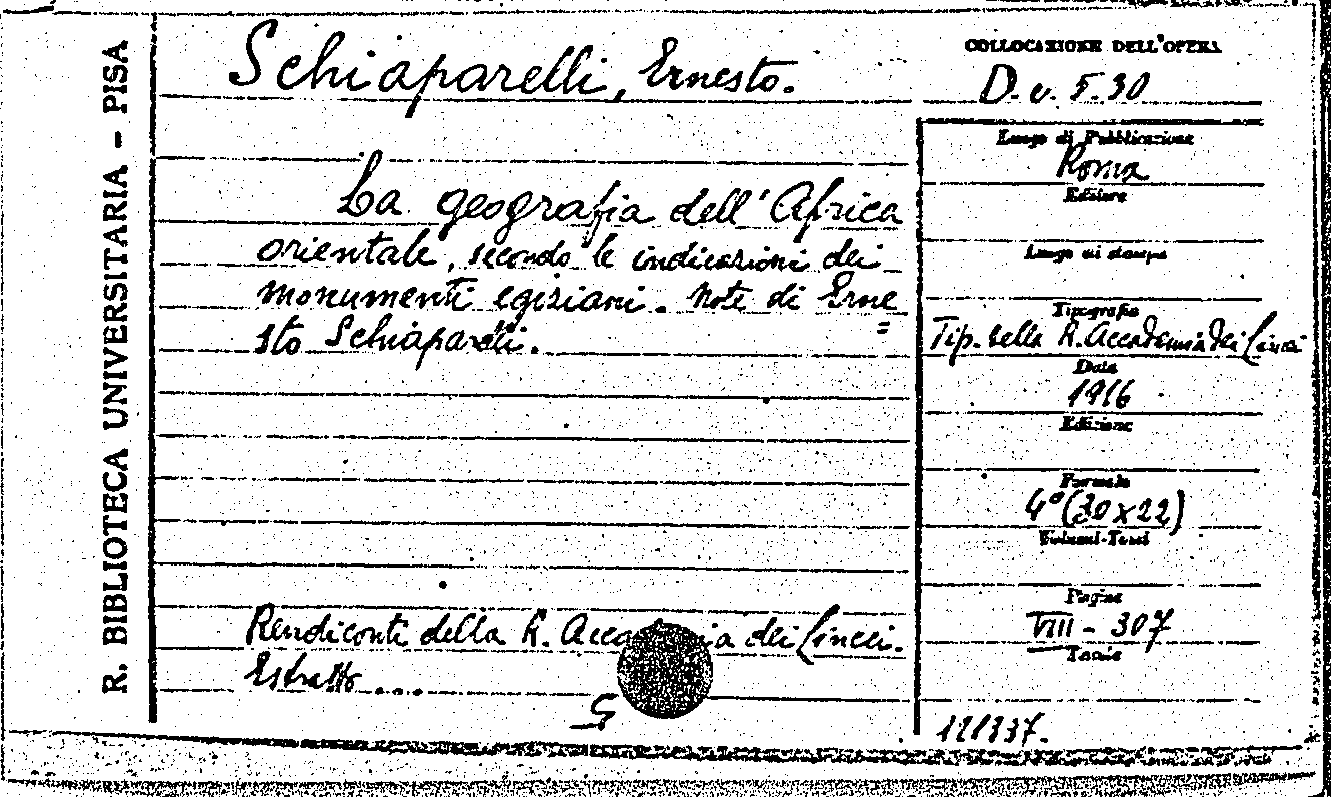 R. BIBLIOTECA UNIVERSITARIA - PISA
Schiaparelli, Ernesto.
La geografia dell'Africa
orientale, secondo le indicazioni dei
monumenti egiziani. Note di Erne
=
sto Schiaparelli.
Rendiconti della R. Accademia dei Lincei.
Estratto....
COLLOCAZIONE DELL'OPERA
D. v. 5.30
Luogo di Pubblicazione
Roma
Editore
Luogo di stampa
Tipografia
Tip. della R. Accademia dei Lincei
Data
1916
Edizione
Formato
4° (30x22)
Volumi-Tomi
Pagine
VIII - 307
Tavole